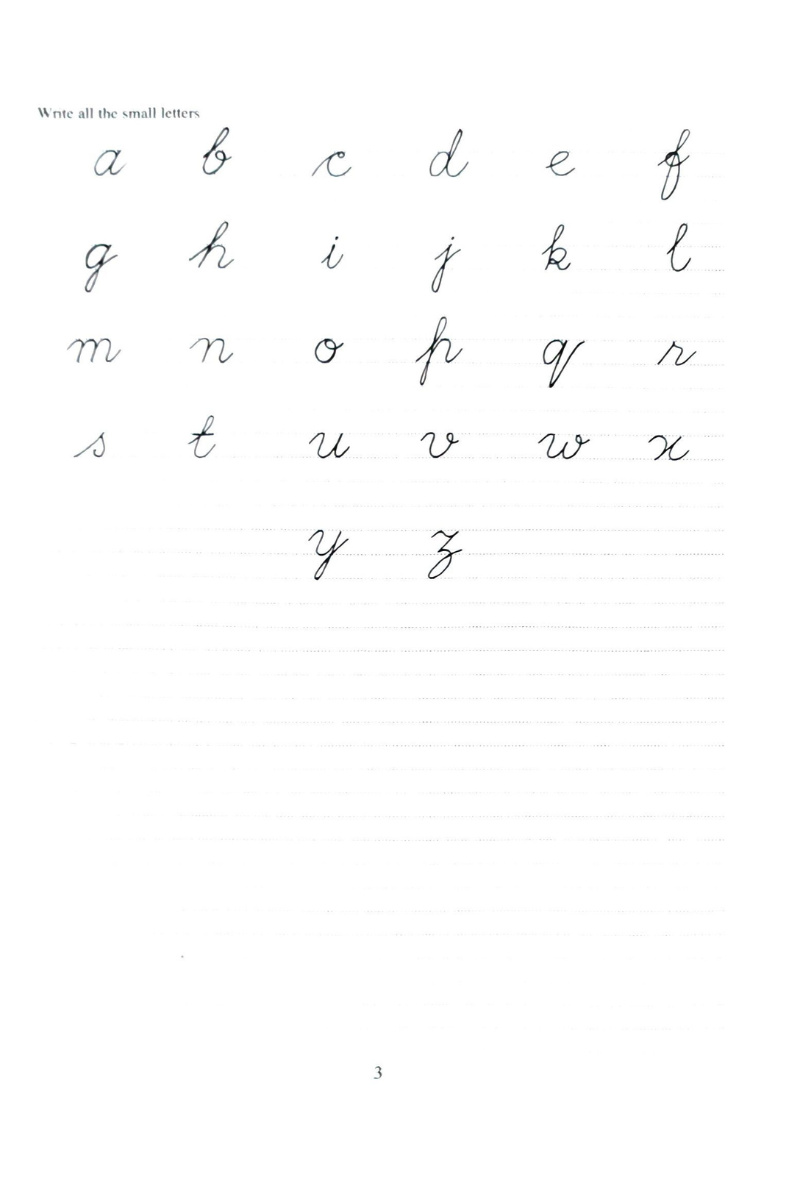 Write all the small letters
a b c d e f
g h i j k l
m n o p q r
s t u v w x
y z
3